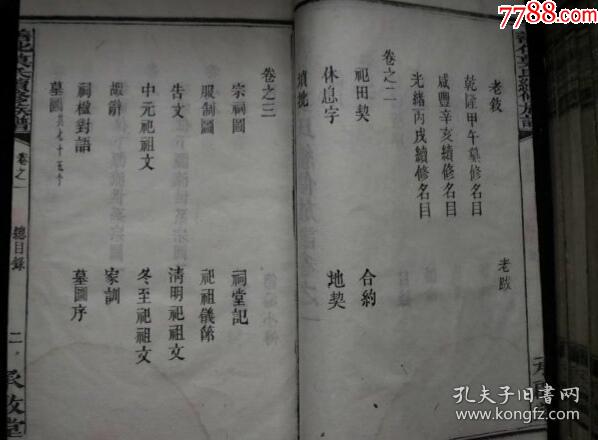 老敘
老跋
乾隆甲午墓修名目
咸豐辛亥續修名目
光緒丙戌續修名目
卷之二
祀田契
合約
休息字
地契
續批
卷之三
宗祠圖
祠堂記
服制圖
祀祖儀節
告文
清明祀祖文
中元祀祖文
冬至祀祖文
誥辭
家訓
祠楹對語
墓圖序
墓圖共七十五个
氏續修族譜
卷之一
總目錄
二
承啟堂
7788.com
孔夫子旧书网
www.kongfz.com